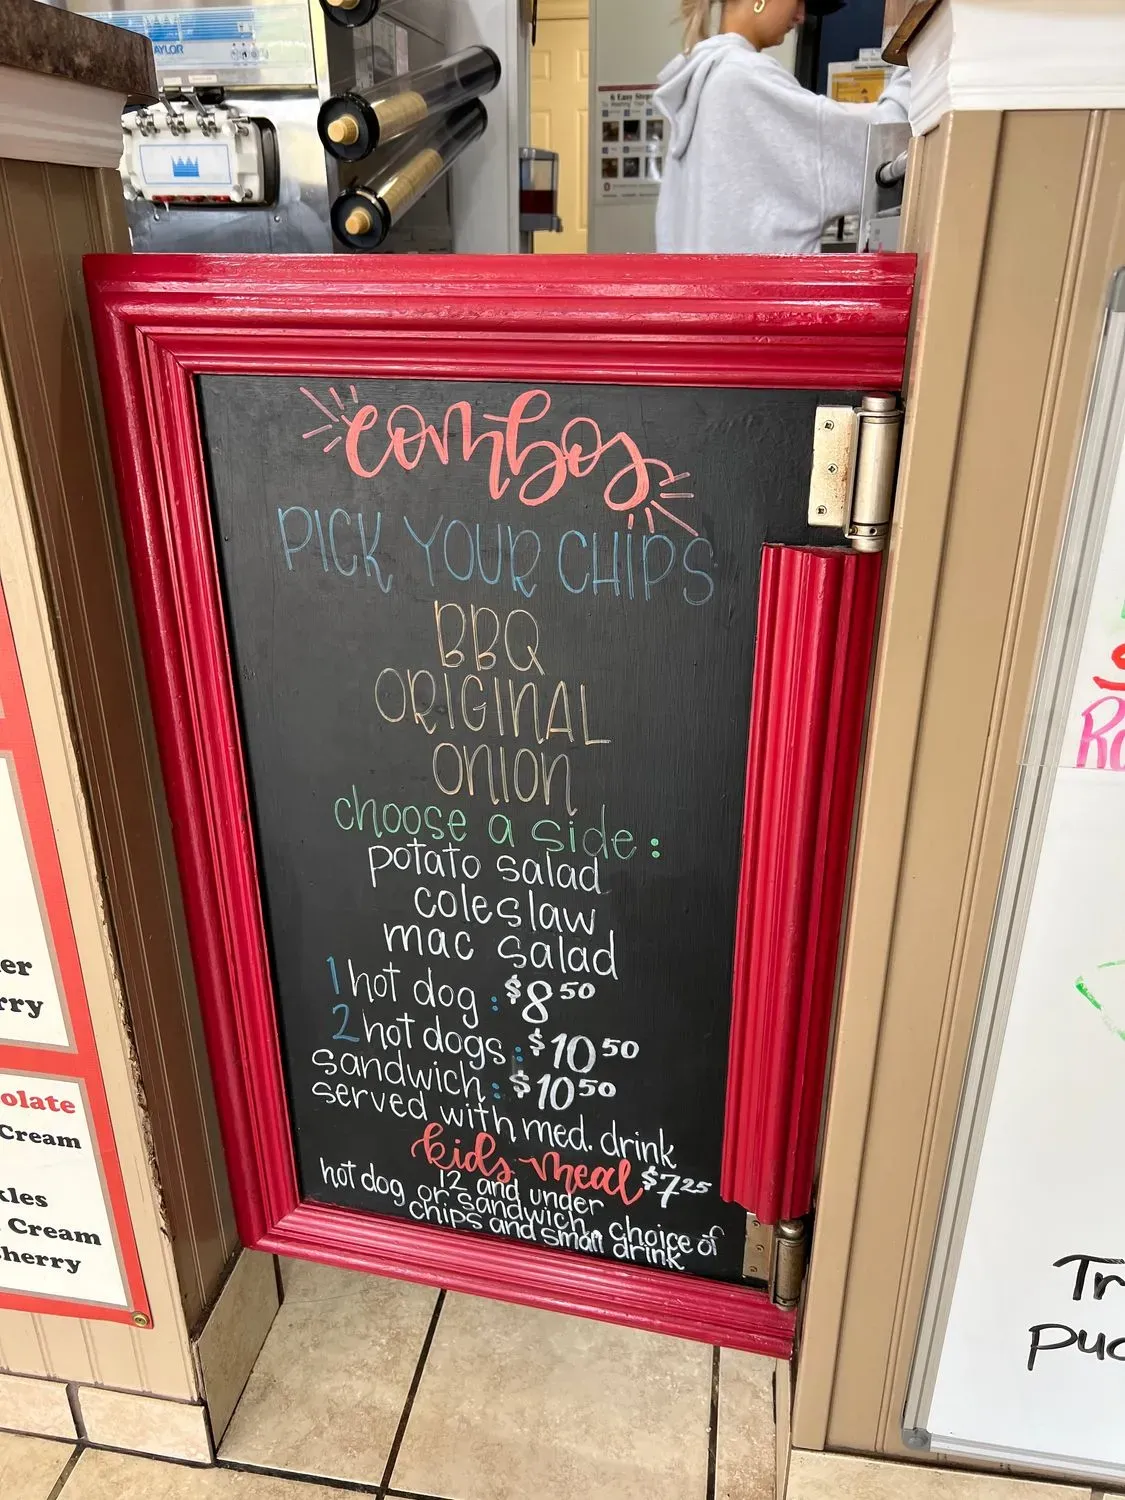 AYLOR
6 Easy Steps
combos
PICK YOUR CHIPS
BBQ
ORIGINAL
ONION
choose a side:
potato salad
coleslaw
mac salad
1 hot dog: $8 50
2 hot dogs: $10 50
sandwich: $10 50
served with med. drink
kids meal $7 25
12 and under
hot dog or sandwich, choice of
chips and small drink
er
rry
olate
Cream
kles
Cream
herry
Tr
puc